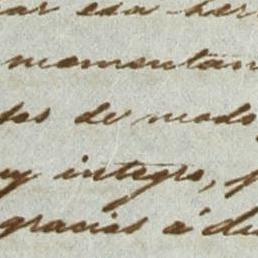 ar esa her
momentan
tos de modo
uy integro, p
gracias á du